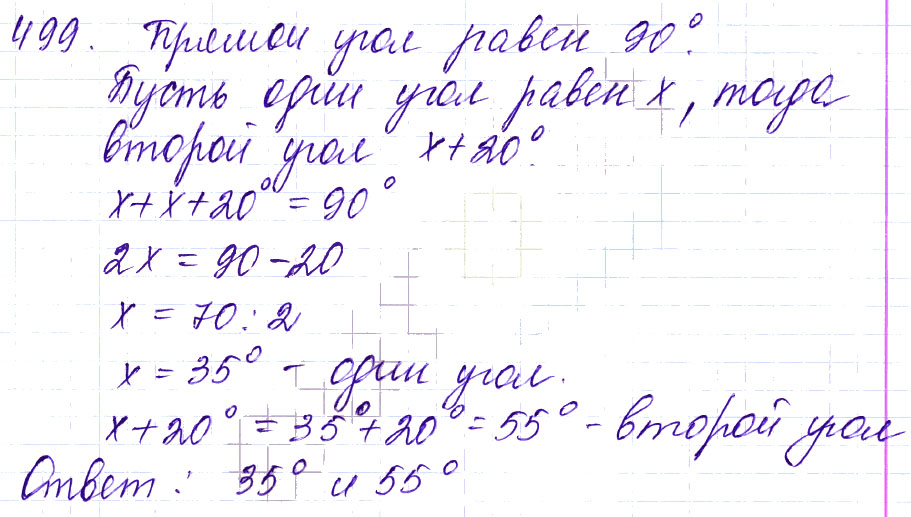 499. Прямой угол равен 90°.
Пусть один угол равен x, тогда
второй угол x+20°.
x+x+20°=90°
2x=90-20
x=70:2
x=35° - один угол.
x+20°=35°+20°=55° - второй угол
Ответ: 35° и 55°